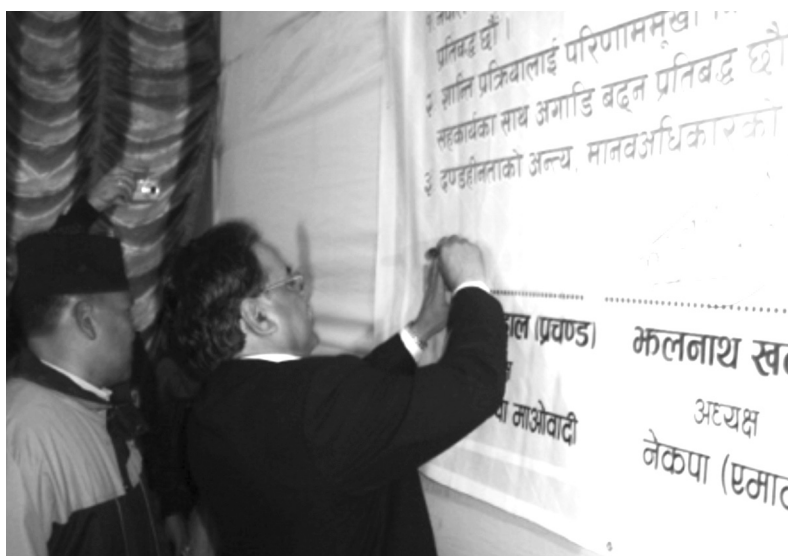 प्रतिबद्ध छौं ।
२ शान्ति प्रक्रियालाई परिणाममूखी
सहकार्यका साथ अगाडि बढ्न प्रतिबद्ध छौं
३ दण्डहीनताको अन्त्य, मानवअधिकारको
(प्रचण्ड) झलनाथ
अध्यक्ष
माओवादी नेकपा